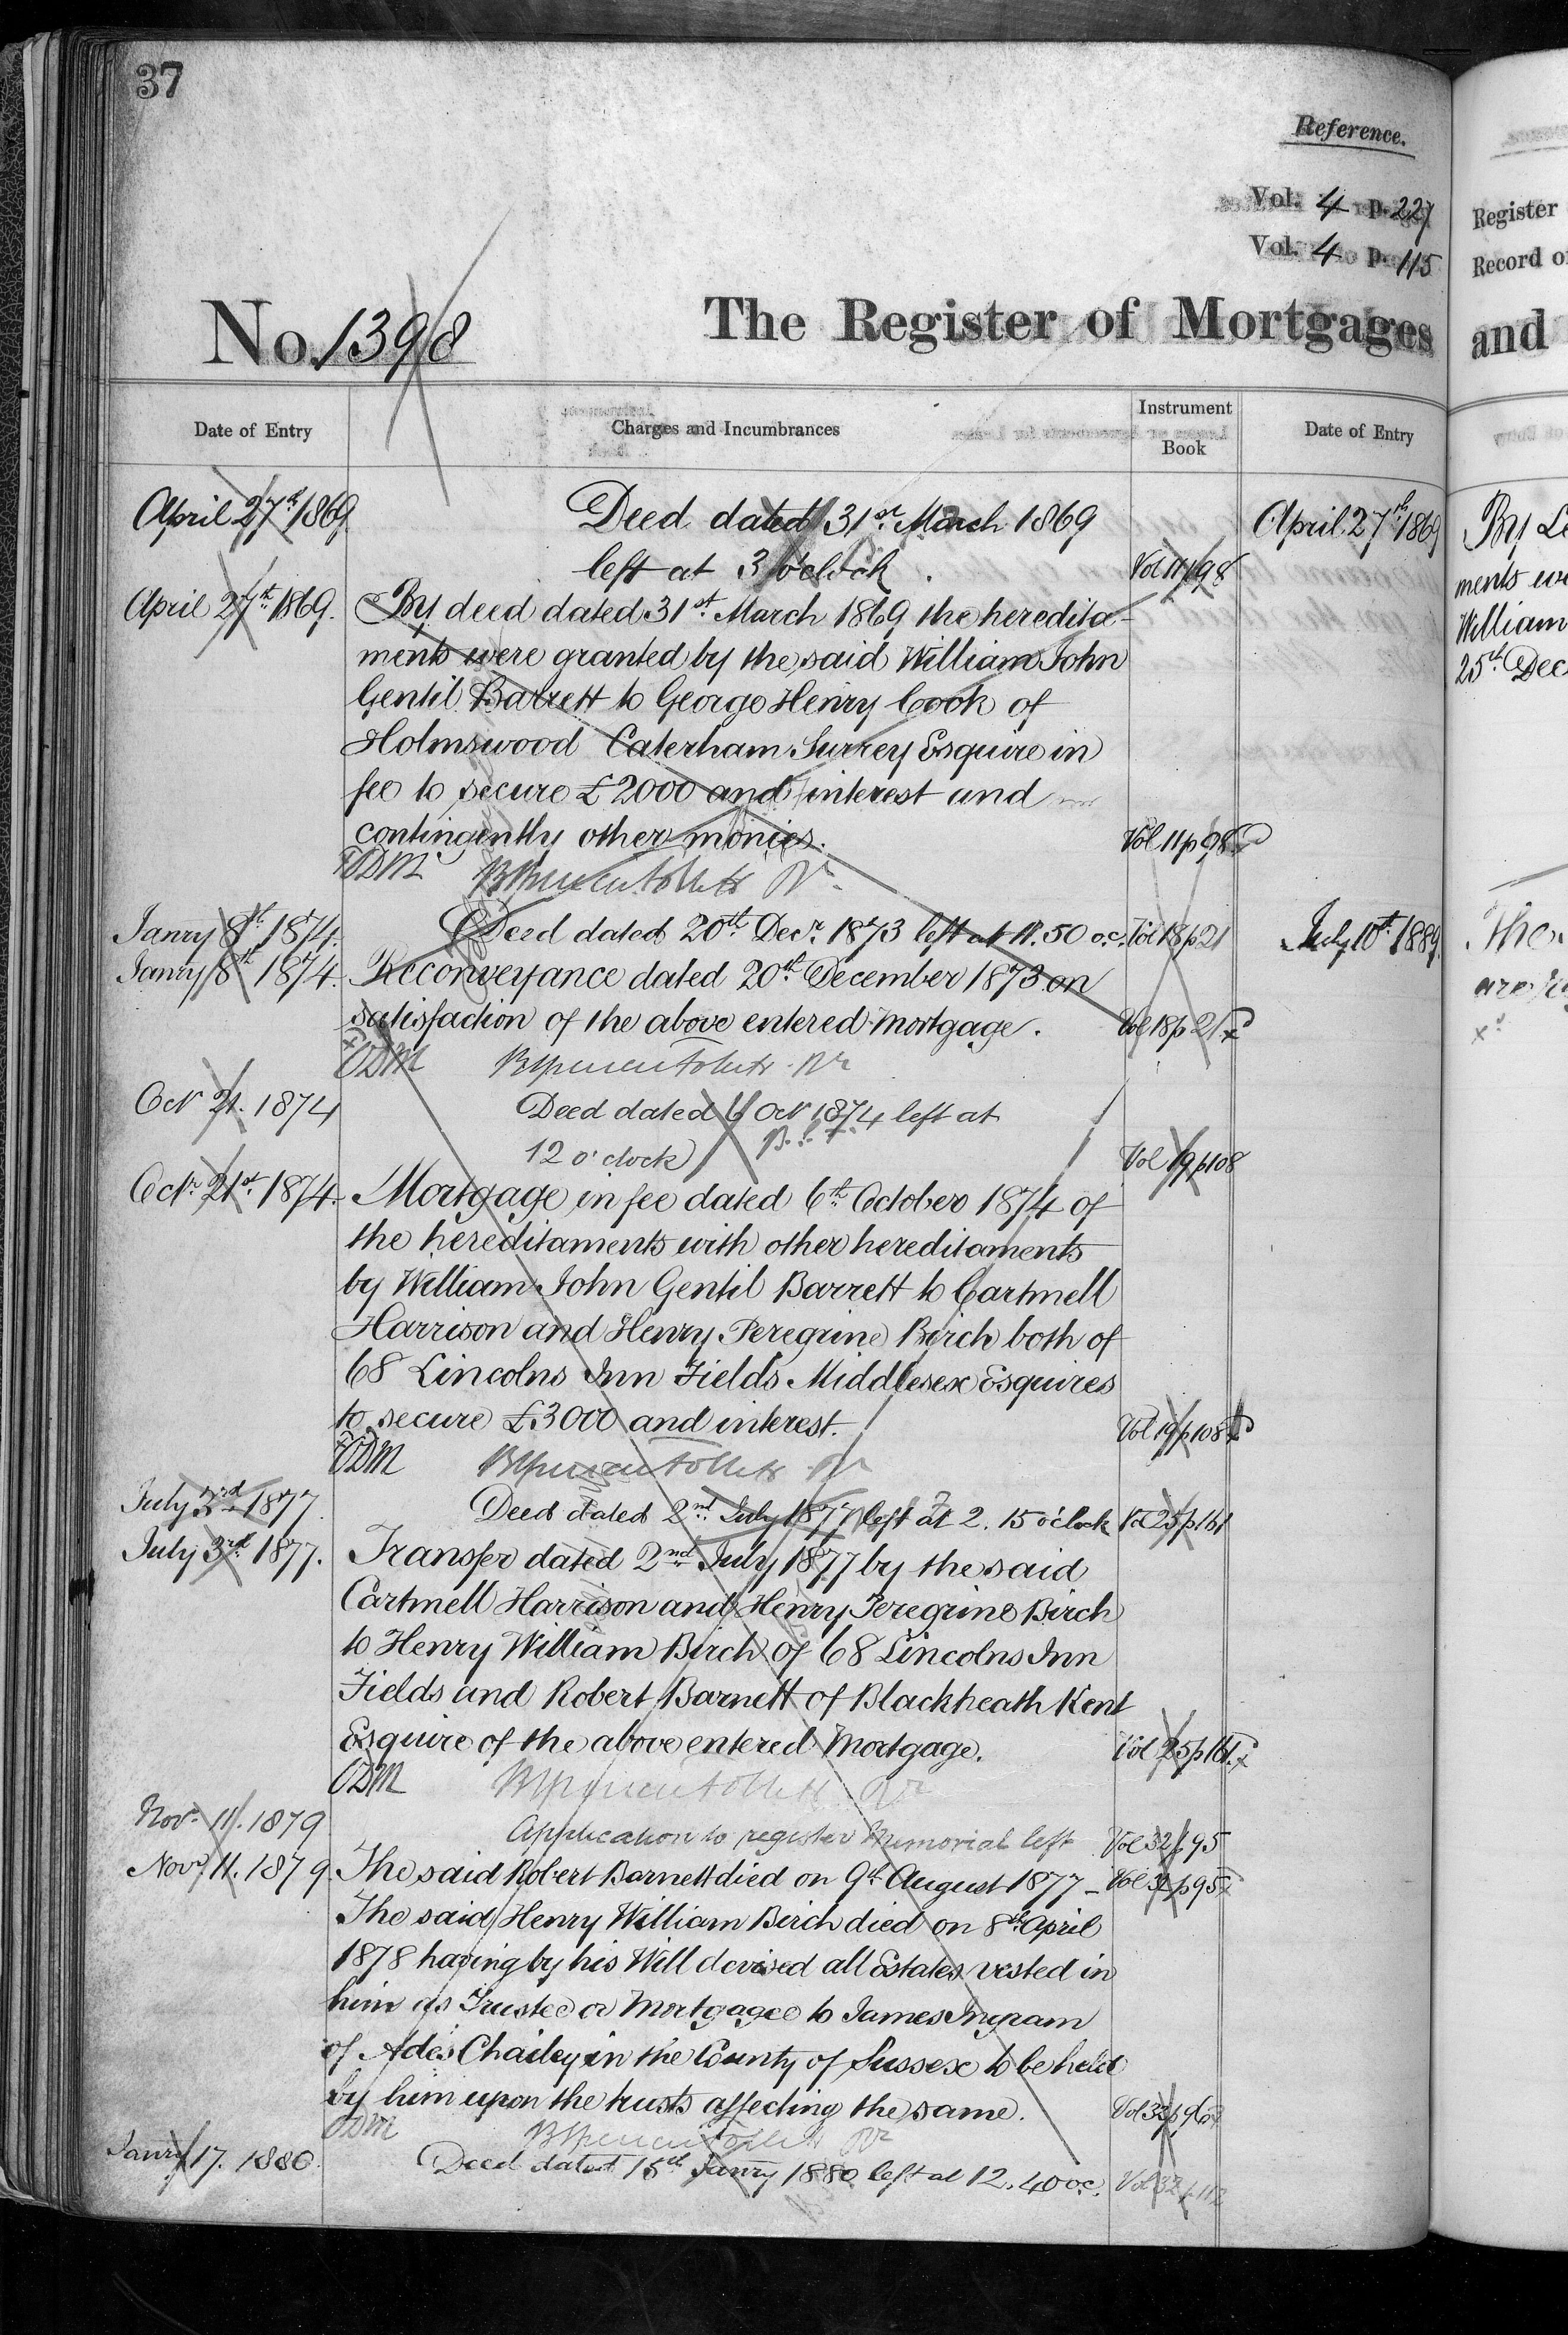 37
Reference.
Vol. 4 p. 227
Vol. 4 p. 115
No. 1398
The Register of Mortgages
Date of Entry
Charges and Incumbrances
Instrument Book
Date of Entry
April 27th 1869. Deed dated 31st March 1869 April 27th 1869
left at 3 o'clock. Vol 11 p 98
April 27th 1869. By deed dated 31st March 1869 the heredita-
ments were granted by the said William John
Gentil Barrett to George Henry Cook of
Holmswood Caterham Surrey Esquire in
fee to secure £2000 and interest and
contingently other monies. Vol 11 p 98
ODM
Janry 8th 1874. Deed dated 20th Decr. 1873 left at 11.50 o.c. Vol 18 p 21 July 10th 1889.
Janry 8th 1874. Reconveyance dated 20th December 1873 on
satisfaction of the above entered Mortgage. Vol 18 p 21
ODM
Oct 21. 1874 Deed dated 6 Oct 1874 left at
12 o'clock Vol 19 p 108
Octr. 21st 1874. Mortgage in fee dated 6th October 1874 of
the hereditaments with other hereditaments
by William John Gentil Barrett to Cartmell
Harrison and Henry Peregrine Birch both of
68 Lincolns Inn Fields Middlesex Esquires
to secure £3000 and interest. Vol 19 p 108
ODM
July 3rd 1877 Deed dated 2nd July 1877 left at 2.15 o'clock Vol 25 p 161
July 3rd 1877. Transfer dated 2nd July 1877 by the said
Cartmell Harrison and Henry Peregrine Birch
to Henry William Birch of 68 Lincolns Inn
Fields and Robert Barnett of Blackheath Kent
Esquire of the above entered Mortgage. Vol 25 p 161.
ODM
Novr. 11. 1879 Application to register Memorial left Vol 32 p 95
Novr. 11. 1879. The said Robert Barnett died on 9th August 1877 - Vol 32 p 95
The said Henry William Birch died on 8th April
1878 having by his Will devised all Estates vested in
him as Trustee or Mortgagee to James Ingram
of Ades Chailey in the County of Sussex to be held
by him upon the trusts affecting the same. Vol 32 p 96
ODM
Janry 17. 1880. Deed dated 15th Janry 1880 left at 12.40 o.c. Vol 32 p 112
Register
Record o
and
By Le
ments we
William
25th Dec
The
are